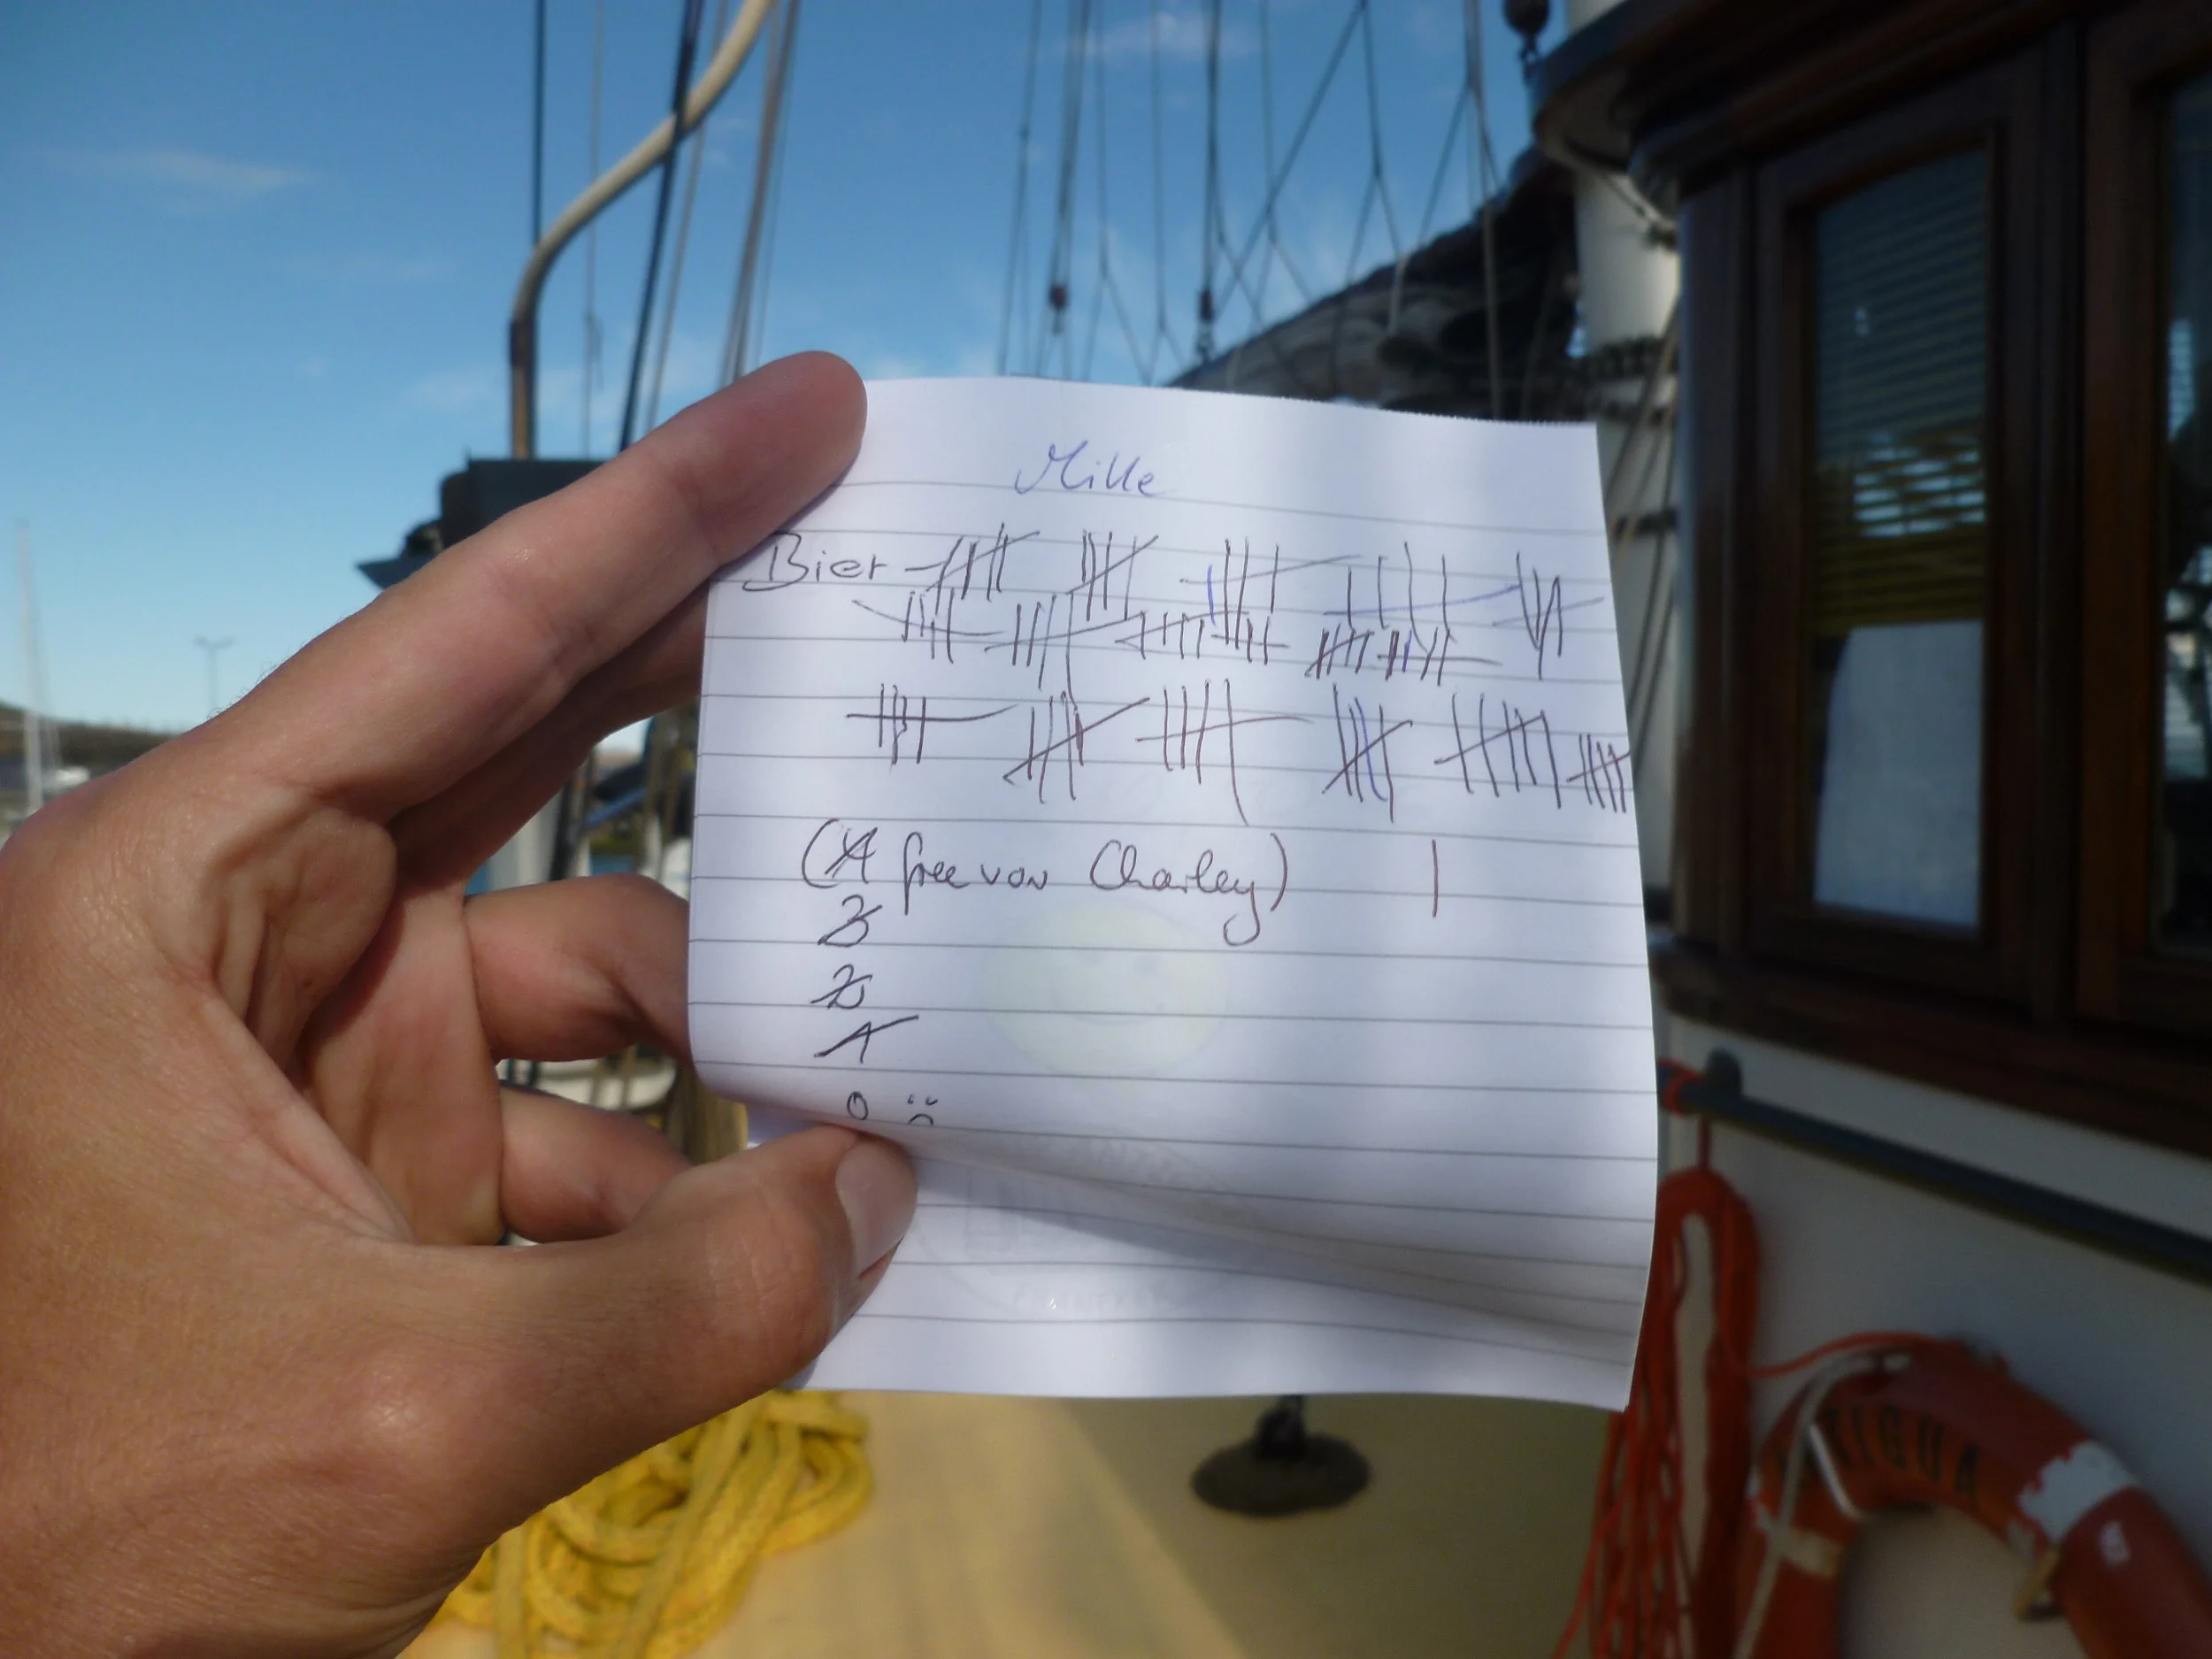 Mille
Bier
(4 free von Charley)
3
2
1
0
TIGUA